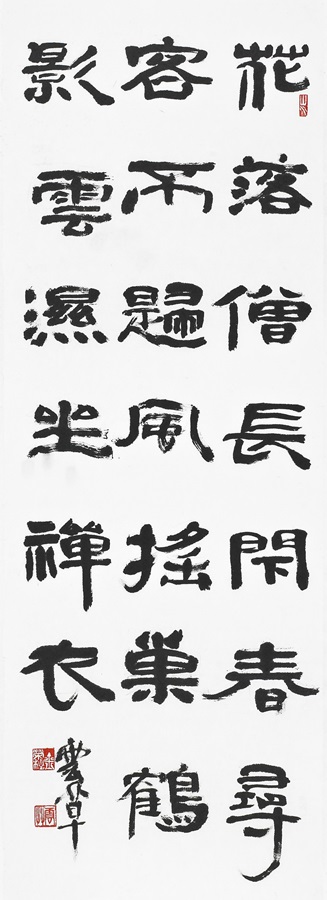 花落僧長閉春尋
客不歸風搖巢鶴
影雲濕坐禪衣